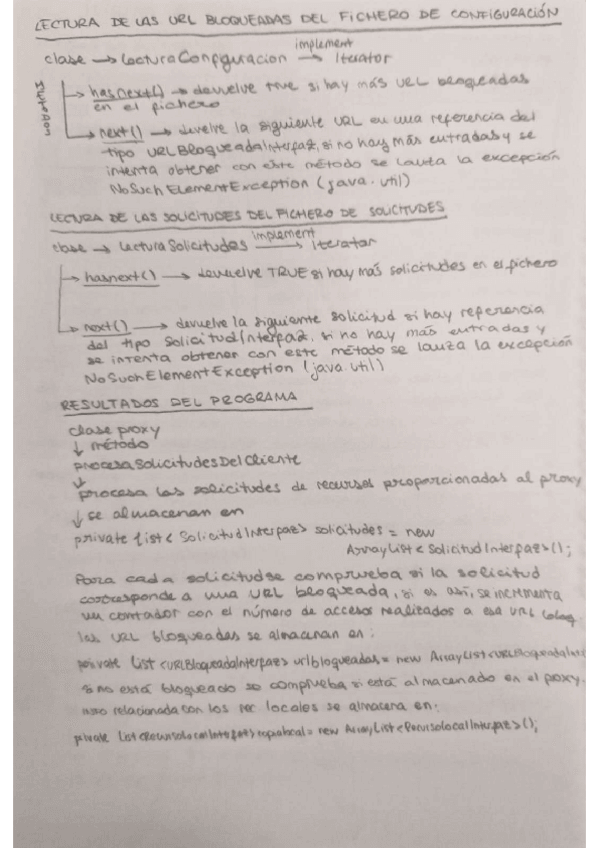 LECTURA DE LAS URL BLOQUEADAS DEL FICHERO DE CONFIGURACIÓN
clase → LecturaConfiguracion implement → Iterator
METODOS
→ hasnext() → devuelve true si hay más URL bloqueadas
en el fichero
→ next() → develve la siguiente URL en una referencia del
tipo URLBloqueadaInterfaz, si no hay más entradas y se
intenta obtener con este método se lanza la excepción
NoSuchElementException (java.util)
LECTURA DE LAS SOLICITUDES DEL FICHERO DE SOLICITUDES
clase → LecturaSolicitudes implement → Iterator
→ hasnext() → devuelve TRUE si hay más solicitudes en el fichero
→ next() → devuelve la siguiente solicitud si hay referencia
del tipo SolicitudInterfaz, si no hay más entradas y
se intenta obtener con este método se lanza la excepción
NoSuchElementException (java.util)
RESULTADOS DEL PROGRAMA
clase proxy
↓ método
procesaSolicitudesDelCliente
↓
procesa las solicitudes de recursos proporcionadas al proxy
↓ se almacenan en
private list<SolicitudInterfaz> solicitudes = new
ArrayList<SolicitudInterfaz>();
Para cada solicitud se comprueba si la solicitud
corresponde a una URL bloqueada, si es así, se incrementa
un contador con el número de accesos realizados a esa URL
las URL bloqueadas se almacenan en:
private List<URLBloqueadaInterfaz> urlbloqueadas = new ArrayList<URLBloqueadaInt
si no está bloqueado se comprueba si está almacenado en el poxy.
relacionada con los rec locales se almacena en:
private List<RecursoLocalInterfaz> = new ArrayList<RecursolocalInterfaz>();